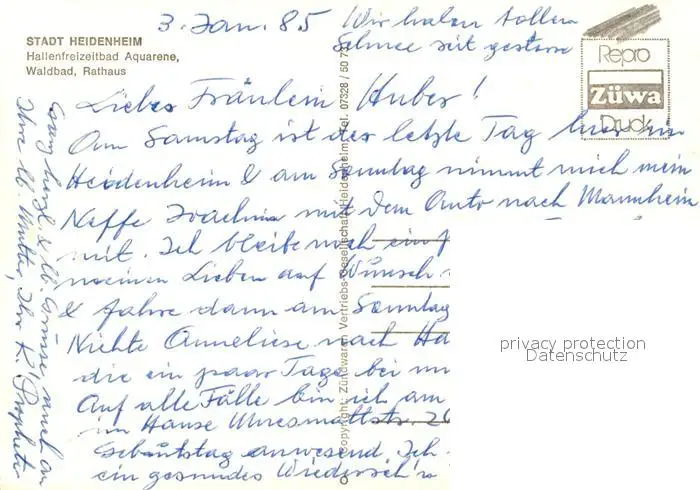 3. Jan. 85
Wir haben tollen
Schnee seit gestern
STADT HEIDENHEIM
Hallenfreizeitbad Aquarene,
Waldbad, Rathaus
Repro
Züwa
Druck
Liebes Fräulein Huber!
Am Samstag ist der letzte Tag hier in
Heidenheim & am Sonntag nimmt mich mein
Neffe Joachim mit dem Auto nach Mannheim
mit. Ich bleibe noch ein
meinen Lieben auf Wunsch
& fahre dann am Sonntag
Nichte Anneliese nach Ha
die ein paar Tage bei
Auf alle Fälle bin ich am
im Hause 20
Geburtstag anwesend. Ich
ein gesundes Wiederseh'n
Ganz herzl. & lb. Grüsse auch an
Ihre lb. Mutter, Ihr K.
Copyright: Zündwaren Vertriebs-Gesellschaft, Heidenheim, Tel. 07328 / 50 7
privacy protection
Datenschutz